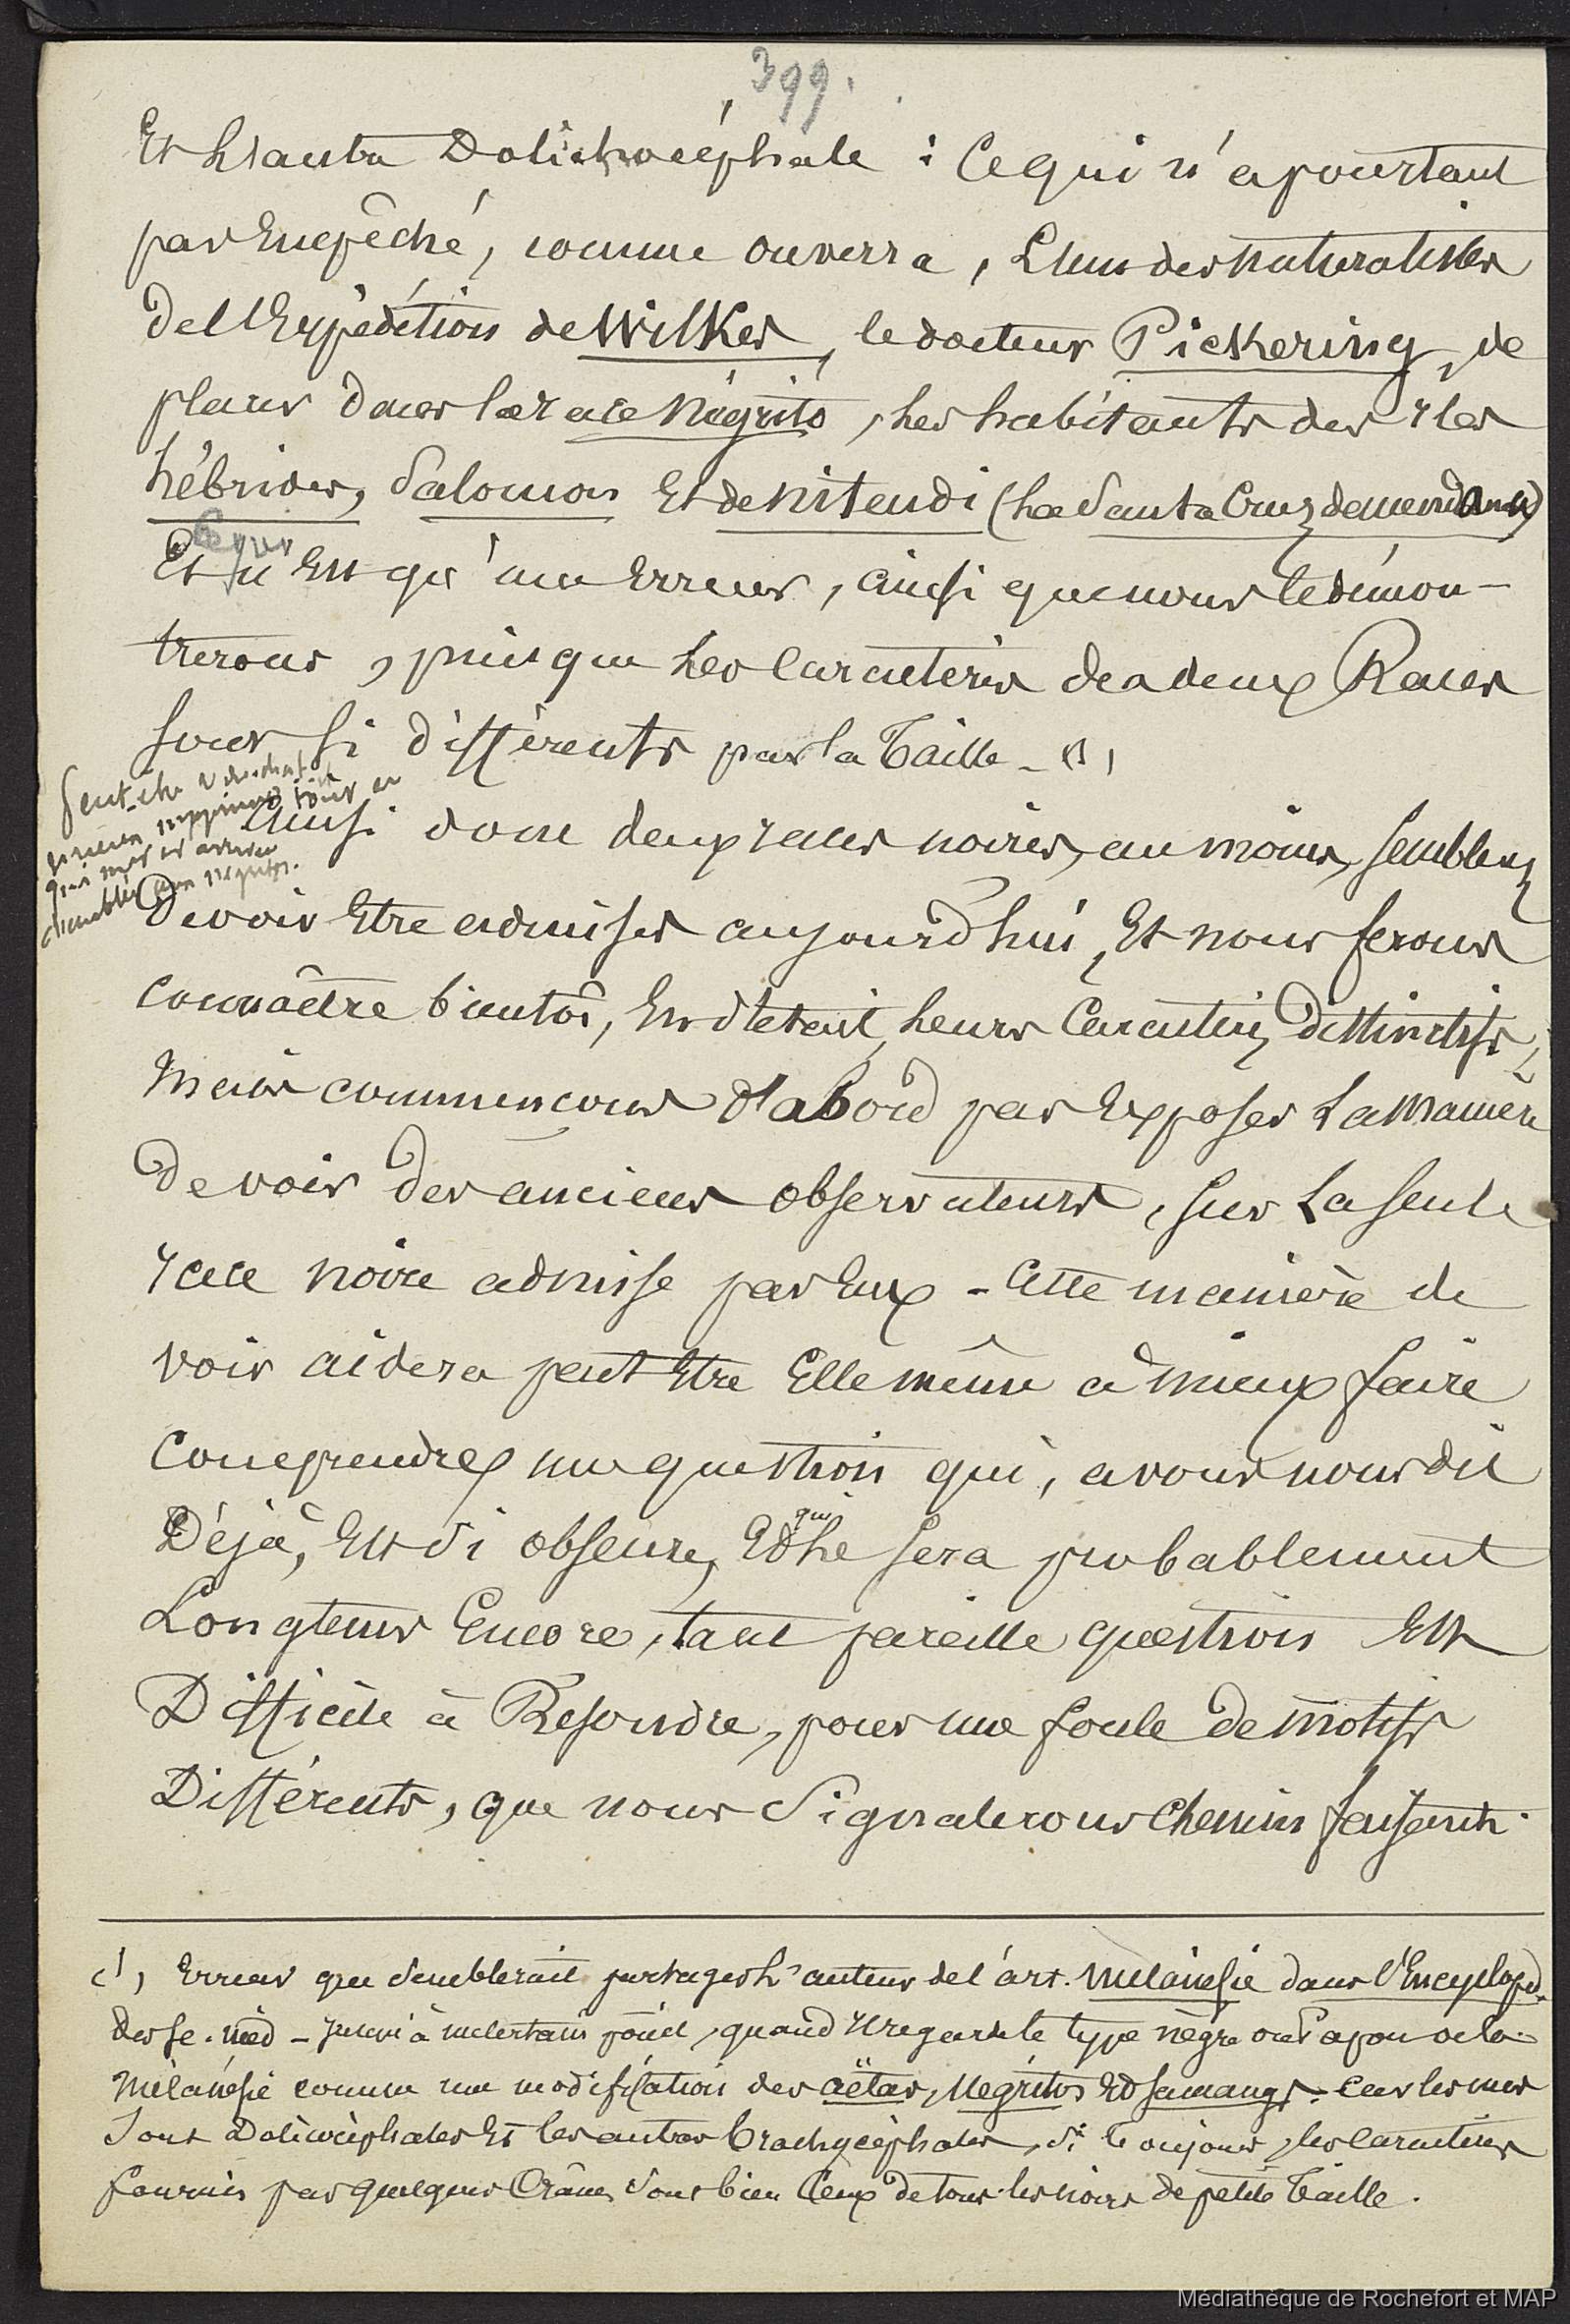 399.
Et l'autre Dolichocéphale : Ce qui n'a pourtant
pas Empêché, comme on verra, L'un des naturalistes
de l'Expédition de Wilkes, le docteur Pickering, de
placer dans la race Négrito, les habitants des îles
hébrides, Salomon Et de Nitendi (La Santa Cruz de mendana)
Ce qui
Et n'Est qu'une Erreur, ainsi que nous le démon-
trerons, puisque les Caractères des deux Races
sont si différents par la Taille - (1)
Peut-être
Ainsi donc deux races noires, au moins, semblent
Devoir Etre admises aujourd'hui, Et nous ferons
Connaître bientôt, En détail, leurs Caractères distinctifs,
Mais commencons d'abord par Exposer La manière
De voir des anciens observateurs, sur La seule
race noire admise par Eux - Cette manière de
voir aidera peut Etre Elle même à mieux faire
Comprendre une question qui, avons nous dit
Déjà, Est si obscure, Et qui le sera probablement
Longtems Encore, tant pareille question Est
Difficile à Résoudre, pour une foule de motifs
Différents, que nous Signalerons Chemin faisant.
(1) Erreur que semblerait partager l'auteur de l'art. Mélanésie dans l'Encyclopd.
des sc. méd - jusqu'à un certain point, quand il regarde le type nègre ou Papou de la
Mélanésie comme une modification des aëtas, Négritos Et Samangs. Car les uns
Sont Dolicocéphales Et les autres brachycéphales, si toujours, les caractères
fournis par quelques Crânes sont bien Ceux de tous les noirs de petite Taille.
Médiathèque de Rochefort et MAP